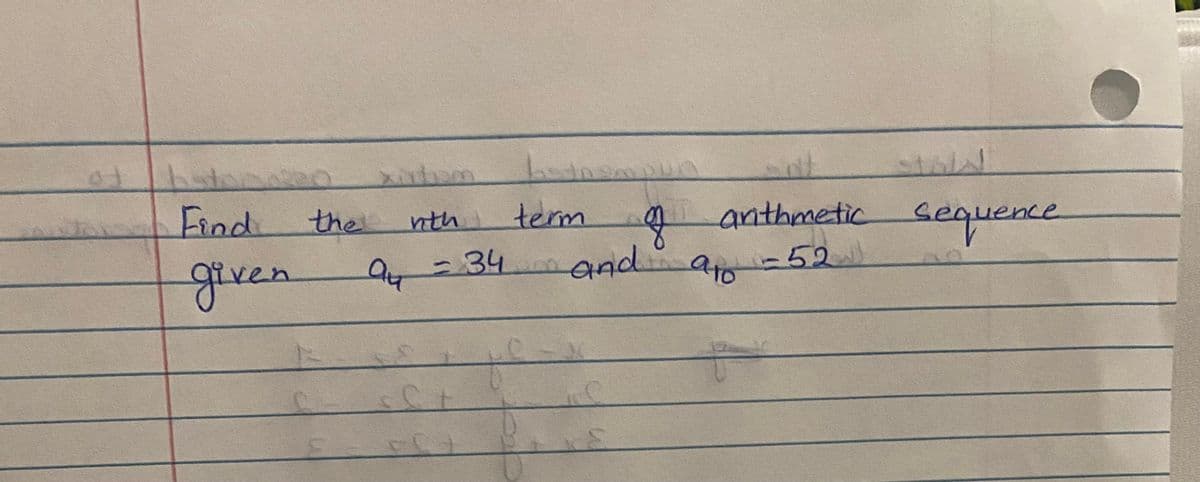 Find the nth term of arithmetic sequence
given a₄ = 34 and a₁₀ = 52